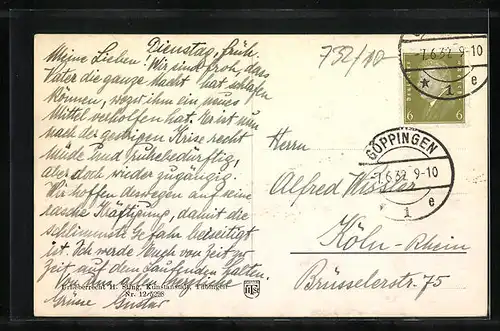 Dienstag, früh.
Meine Lieben! Wir sind froh, dass
Vater die ganze Nacht hat schlafen
können, wozu ihm ein neues
Mittel verholfen hat. Er ist nun
nach der gestrigen Krise recht
müde und ruhebedürftig,
aber doch wieder zugängig.
Wir hoffen deswegen auf eine
rasche Kräftigung, damit die
schlimmste Gefahr beseitigt
ist. Ich werde Euch von Zeit zu
Zeit auf dem Laufenden halten.
Grüsse Gustav
732/10
-7.6.32 9-10
* i e
6 6
GÖPPINGEN
-7.6.32 9-10
* i e
Herrn
Alfred Wissler
Köln-Rhein
Brüsselerstr. 75
H. Sting, Kunstanstalt, Tübingen
Nr. 12/5298